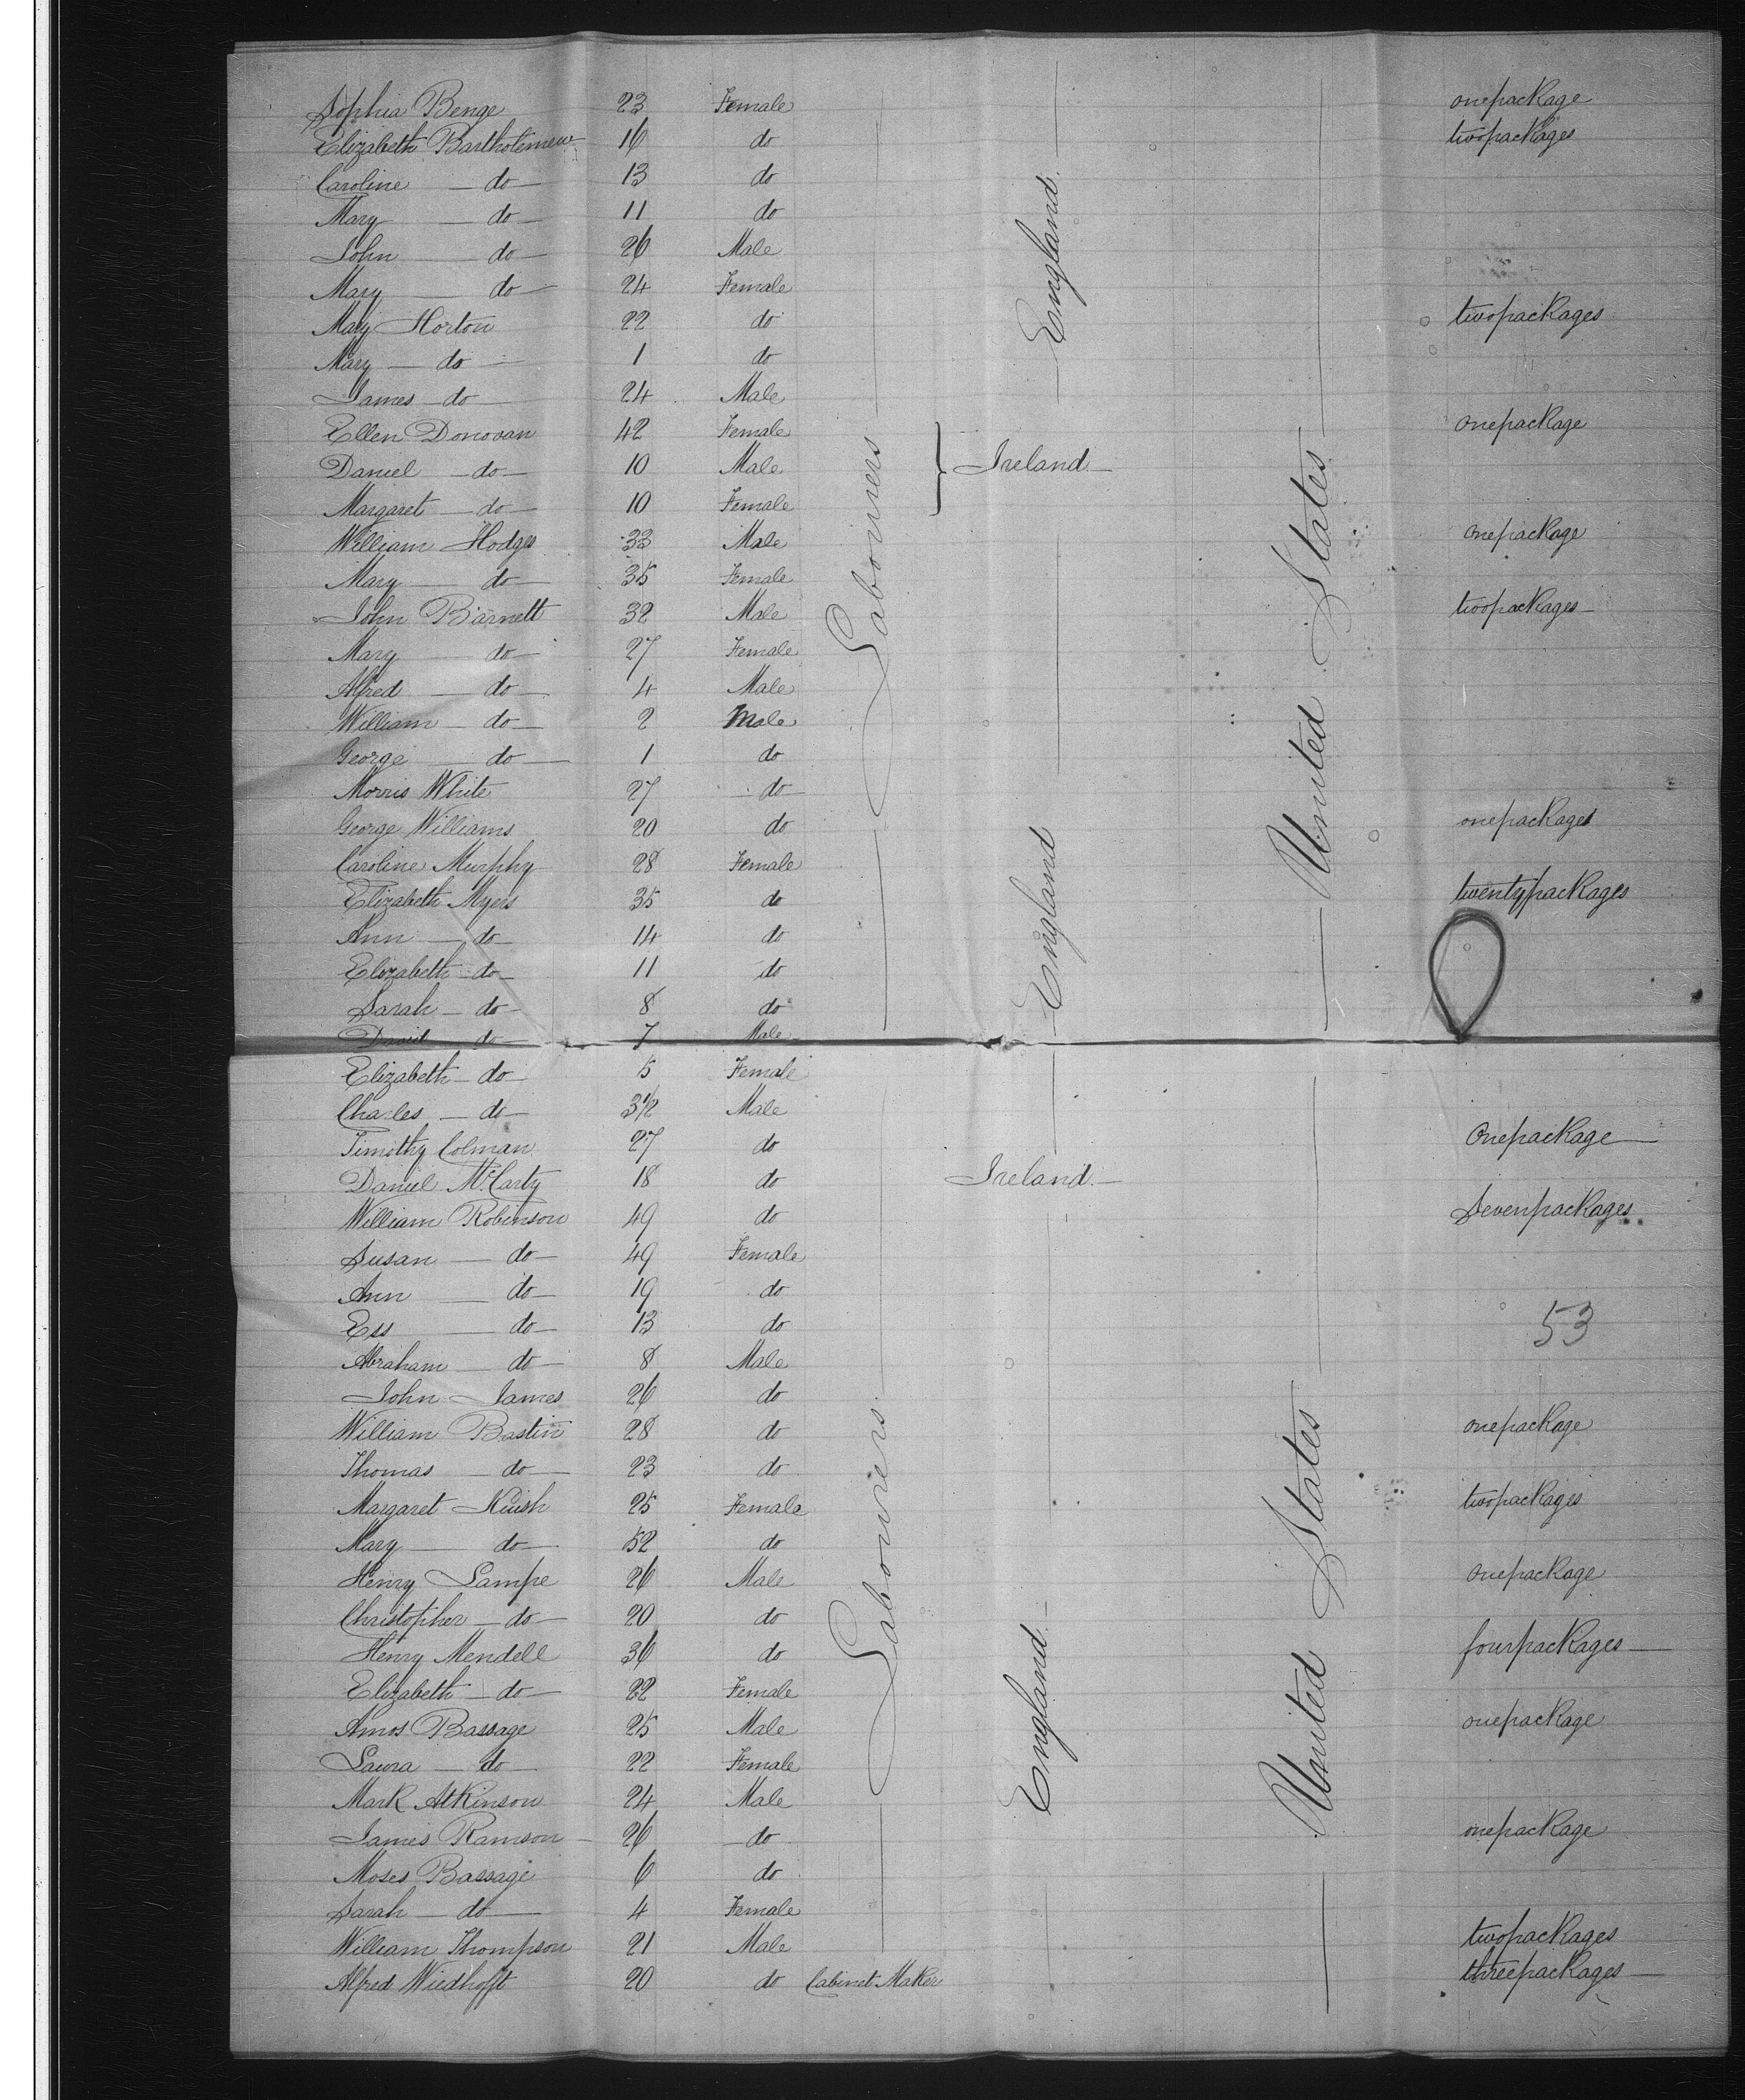 Sophia Benge 23 Female onepackage
Elizabeth Bartholimew 16 do twopackages
Caroline — do — 13 do
Mary — do — 11 do
John — do — 26 Male
Mary — do — 24 Female
Mary Horton 22 do twopackages
Mary — do — 1 do
James — do — 24 Male
Ellen Donovan 42 Female onepackage
Daniel — do — 10 Male Ireland —
Margaret — do — 10 Female
William Hodges 33 Male onepackage
Mary — do — 35 Female
John Barnett 32 Male twopackages —
Mary — do — 27 Female
Alfred — do — 4 Male
William — do — 2 Male
George — do — 1 do
Morris White 27 do
George Williams 20 do onepackages
Caroline Murphy 28 Female
Elizabeth Myers 35 do twentypackages
Ann — do — 14 do
Elizabeth — do — 11 do
Sarah — do — 8 do
David — do — 7 Male
Elizabeth — do — 5 Female
Charles — do — 3 1/2 Male
Timothy Colman 27 do Onepackage —
Daniel McCarty 18 do Ireland —
William Robinson 49 do Sevenpackages
Susan — do — 49 Female
Ann — do — 19 do
Ess — do — 13 do 53
Abraham — do — 8 Male
John James 26 do
William Bastin 28 do onepackage
Thomas — do — 23 do
Margaret 25 Female twopackages
Mary — do — 52 do
Henry Lampe 26 Male onepackage
Christopher — do — 20 do
Henry Mendell 36 do fourpackages —
Elizabeth — do — 22 Female
Amos Bassage 25 Male onepackage
Laura — do — 22 Female
Mark Atkinson 24 Male
James Ramson 26 do onepackage
Moses Bassage 6 do
Sarah — do — 4 Female
William Thompson 21 Male twopackages
Alfred Wiedhofft 20 do Cabinet Maker threepackages —
Labourers
Labourers
England
England
England
United States
United States